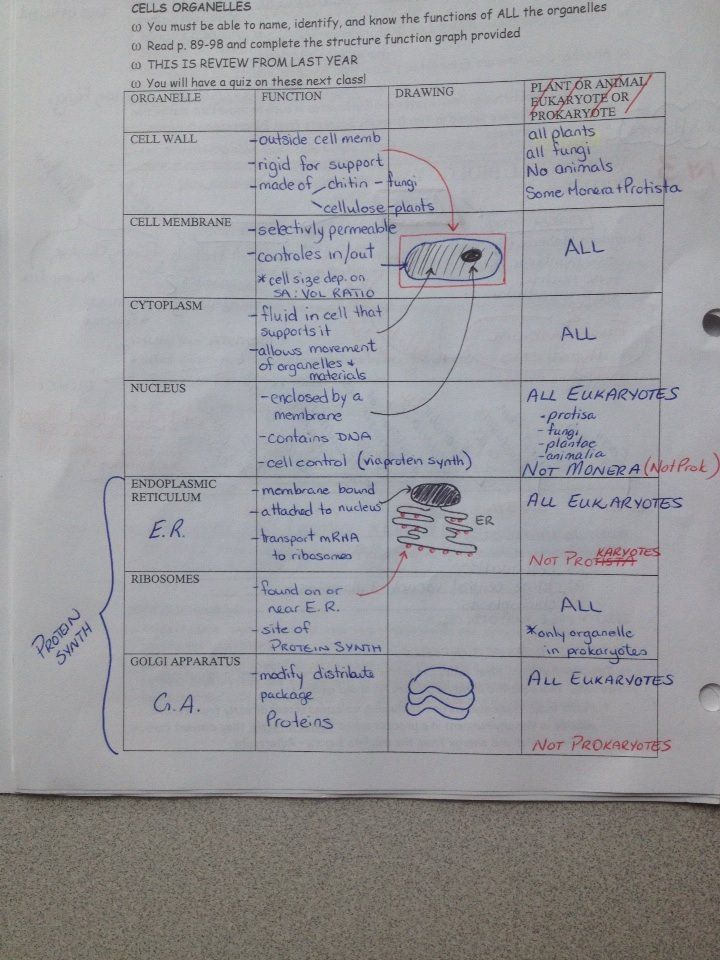 CELLS ORGANELLES
ω) You must be able to name, identify, and know the functions of ALL the organelles
ω) Read p. 89-98 and complete the structure function graph provided
ω) THIS IS REVIEW FROM LAST YEAR
ω) You will have a quiz on these next class!
ORGANELLE
FUNCTION
DRAWING
PLANT OR ANIMAL
EUKARYOTE OR
PROKARYOTE
CELL WALL
- outside cell memb
- rigid for support
- made of chitin - fungi
cellulose - plants
all plants
all fungi
No animals
Some Monera + Protista
CELL MEMBRANE
- selectivly permeable
- controles in/out
* cell size dep. on
SA : VOL RATIO
ALL
CYTOPLASM
- fluid in cell that
supports it
- allows movement
of organelles +
materials
ALL
NUCLEUS
- enclosed by a
membrane
- contains DNA
- cell control (via protein synth)
ALL EUKARYOTES
- protisa
- fungi
- plantae
- animalia
NOT MONERA (Not Prok)
ENDOPLASMIC
RETICULUM
E.R.
- membrane bound
- attached to nucleus
- transport mRNA
to ribosomes
ER
ALL EUKARYOTES
NOT PROTISTA KARYOTES
RIBOSOMES
- found on or
near E.R.
- site of
PROTEIN SYNTH
ALL
* only organelle
in prokaryotes
GOLGI APPARATUS
G.A.
- modify distribute
package
Proteins
ALL EUKARYOTES
NOT PROKARYOTES
PROTEIN
SYNTH